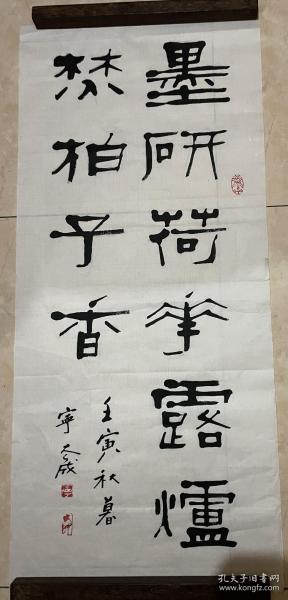 墨研荷華露爐
焚柏子香
壬寅秋暮
寧大成
孔夫子旧书网
www.kongfz.com